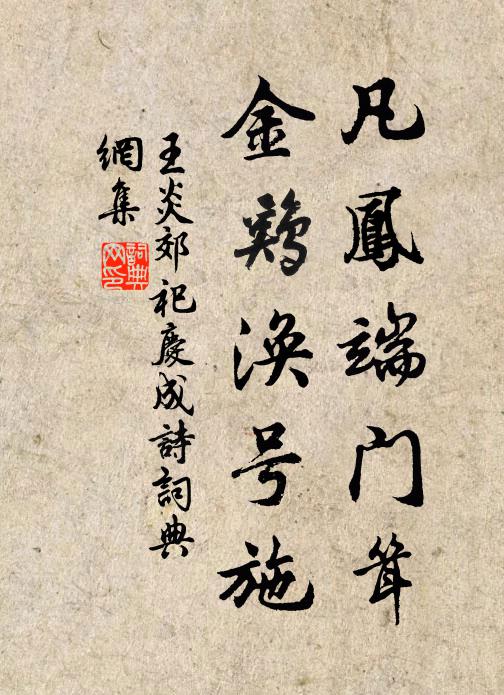 凡鳳端门耸
金鷄涣号施
王炎郊祀慶成詩詞典
網集
詞典网印